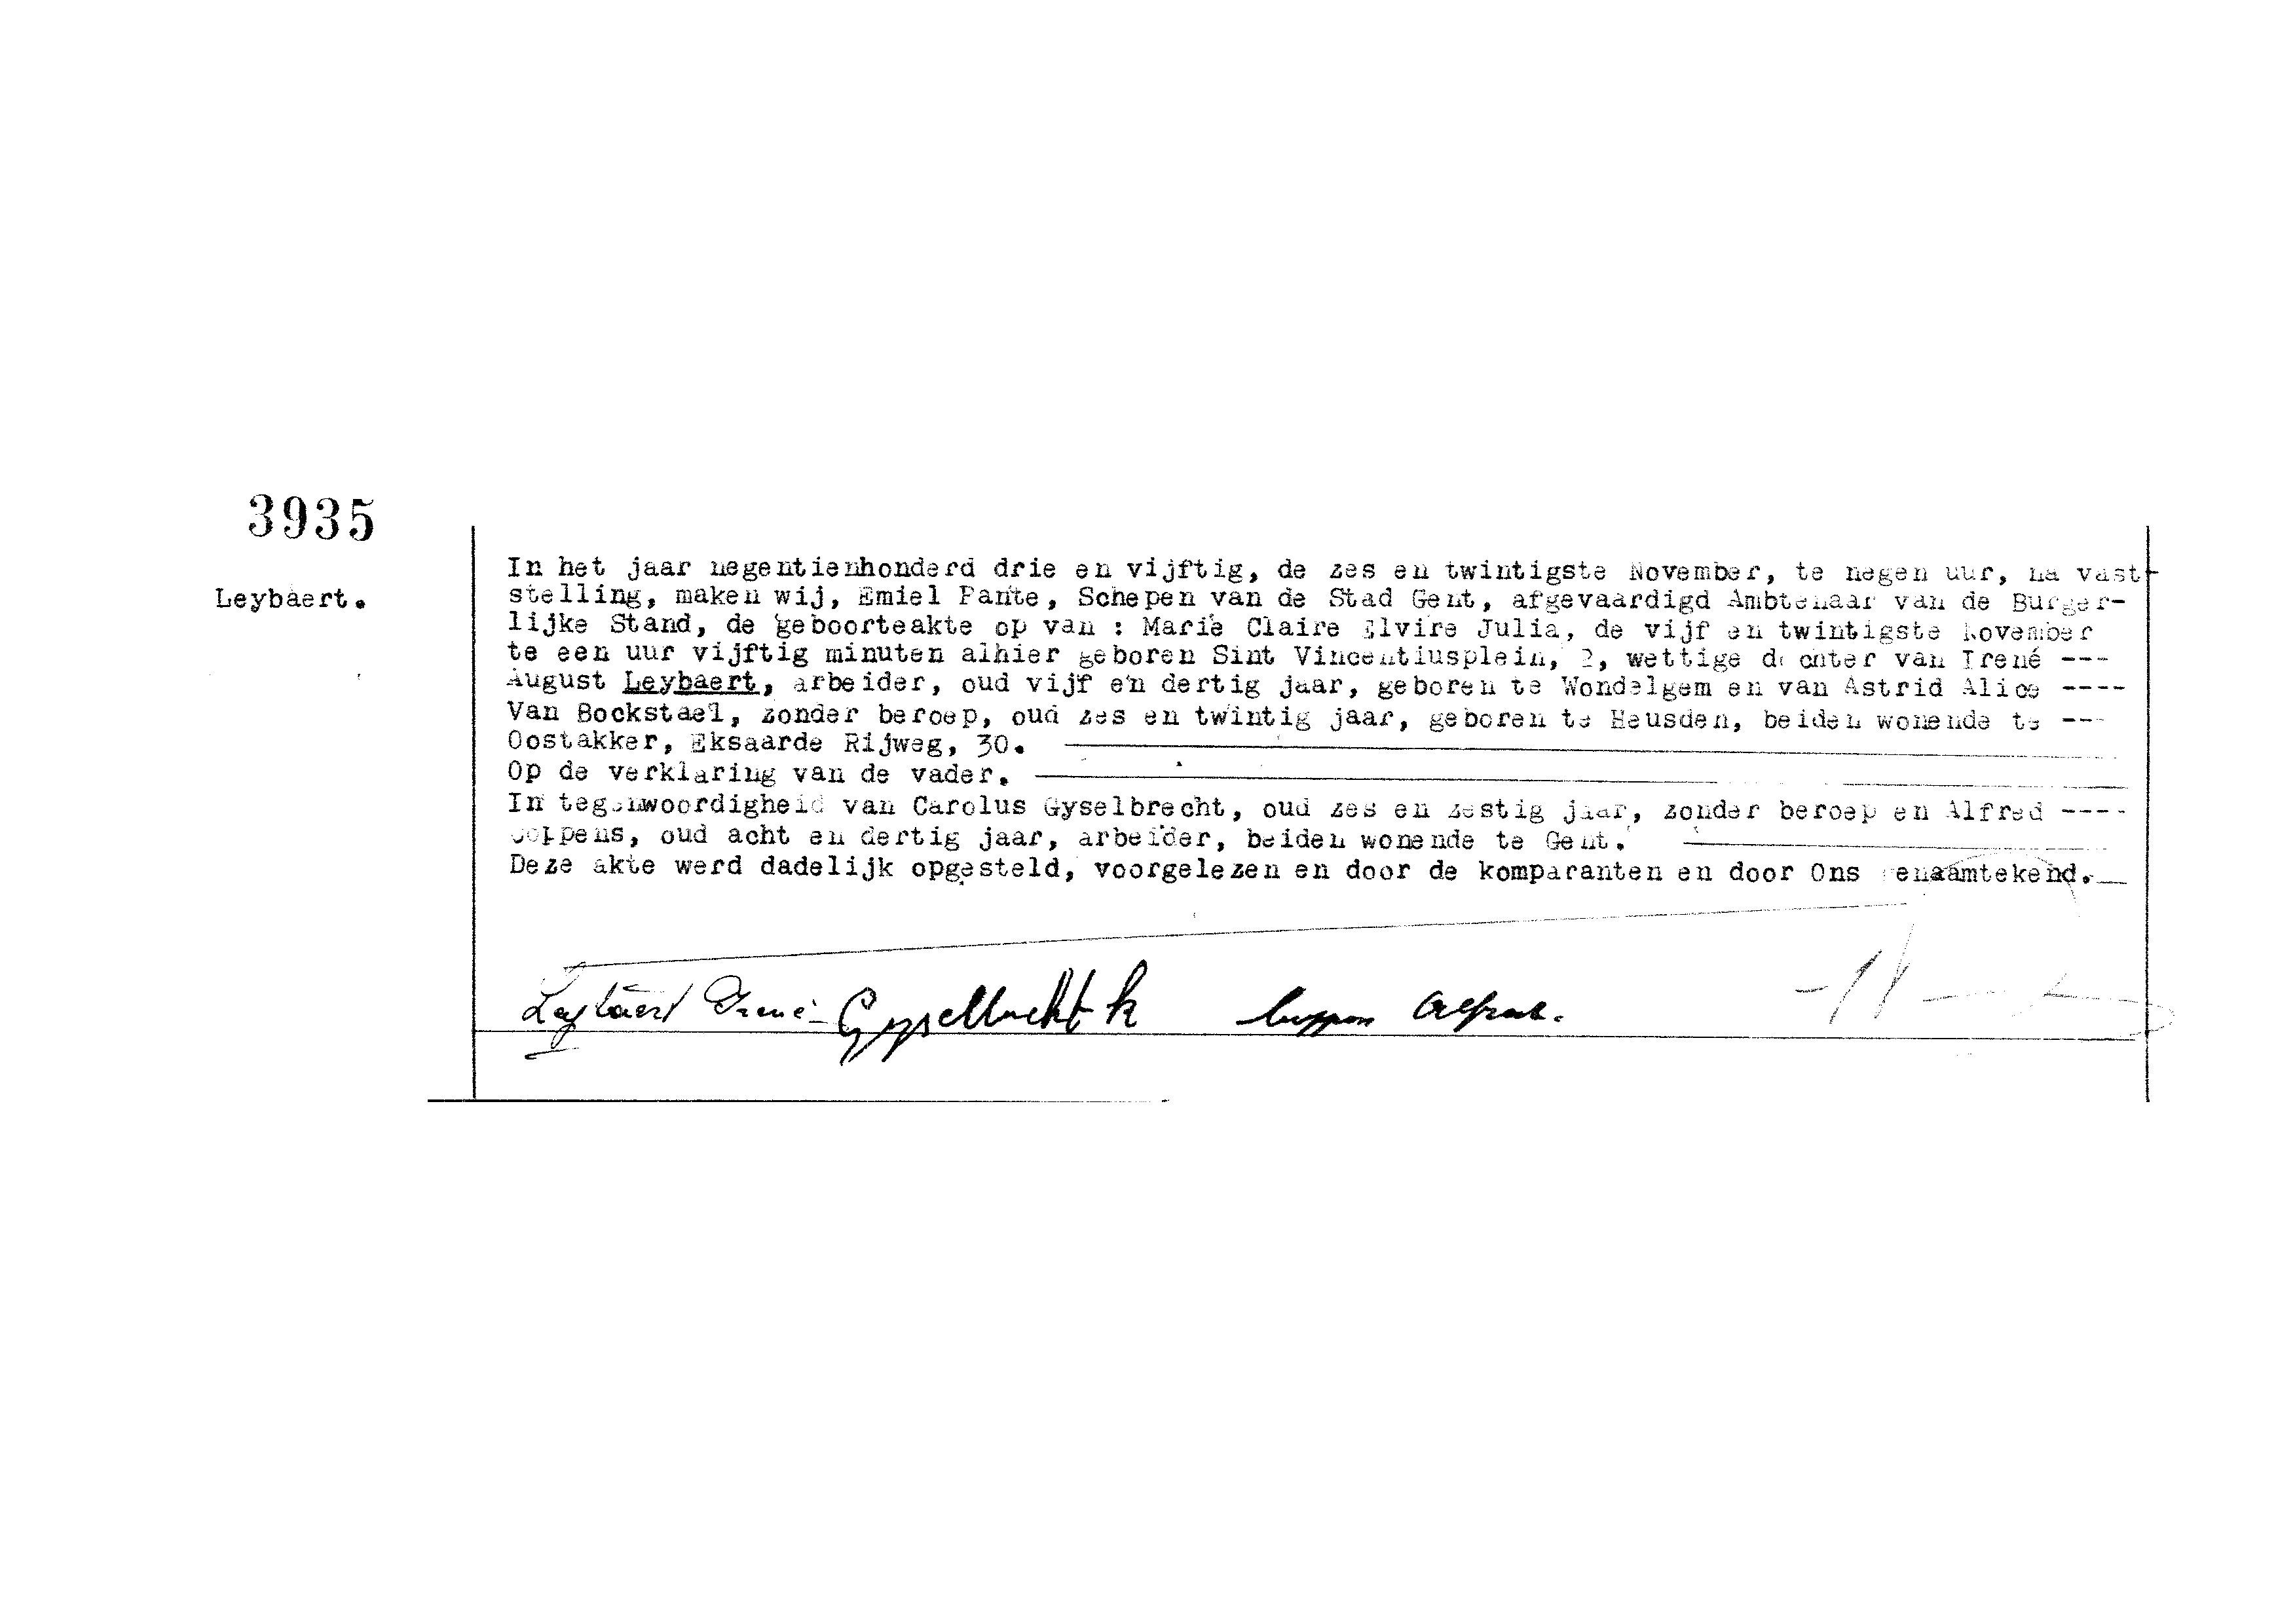 3935
Leybaert.
In het jaar negentienhonderd drie en vijftig, de zes en twintigste November, te negen uur, na vast-
stelling, maken wij, Emiel Pante, Schepen van de Stad Gent, afgevaardigd Ambtenaar van de Burger-
lijke Stand, de geboorteakte op van : Marie Claire Elvire Julia, de vijf en twintigste November
te een uur vijftig minuten alhier geboren Sint Vincentiusplein, 2, wettige dochter van Irené ---
August Leybaert, arbeider, oud vijf en dertig jaar, geboren te Wondelgem en van Astrid Alice ----
Van Bockstael, zonder beroep, oud zes en twintig jaar, geboren te Heusden, beiden wonende te ---
Oostakker, Eksaarde Rijweg, 30.
Op de verklaring van de vader.
In tegenwoordigheid van Carolus Gyselbrecht, oud zes en zestig jaar, zonder beroep en Alfred ----
oud acht en dertig jaar, arbeider, beiden wonende te Gent.
Deze akte werd dadelijk opgesteld, voorgelezen en door de komparanten en door Ons genaamtekend.
Leybaert Irené Gyselbrecht K Alfred.